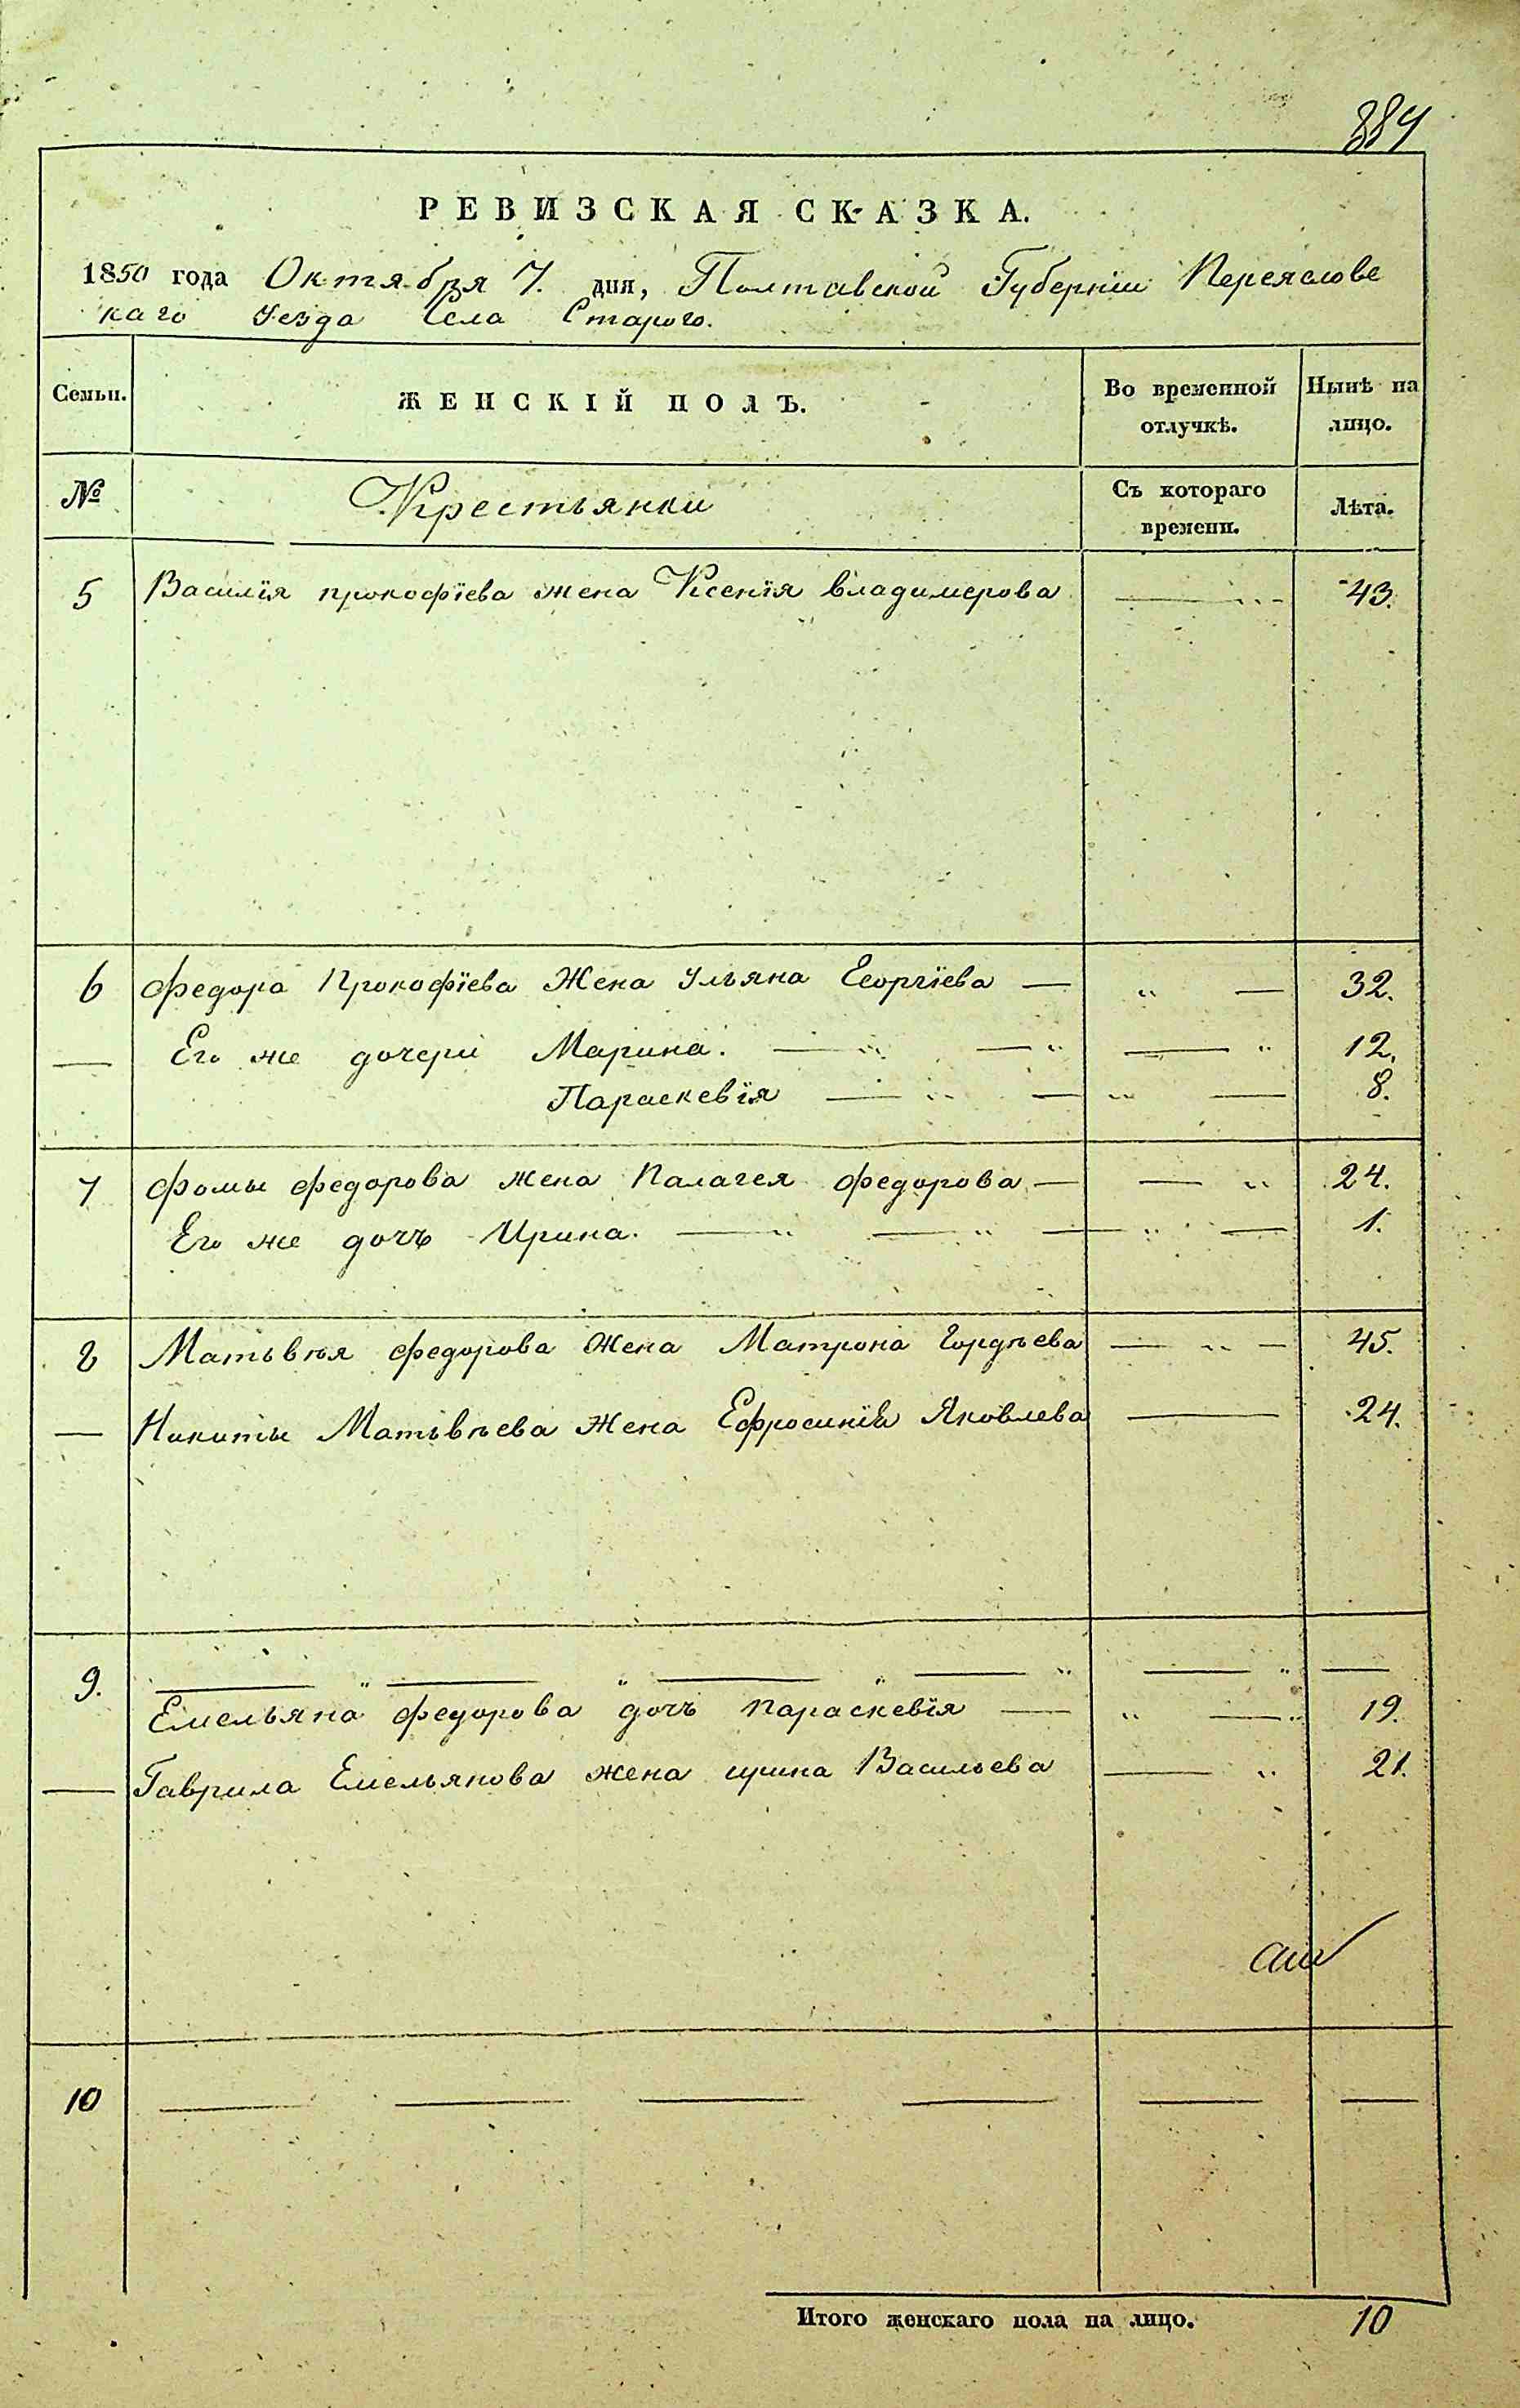 884
РЕВИЗСКАЯ СКАЗКА.
1850 года Октября 7. дня, Полтавской Губерніи Переяслове
каго Уезда Села Старого.
Семьи. ЖЕНСКІЙ ПОЛЪ. Во временной отлучкѣ. Нынѣ на лицо.
№ Крестьянки Съ котораго времени. Лѣта.
5 Василія прокофіева жена Ксенія владимерова — „ — 43.
6 Федора Прокофіева Жена Ульяна Георгіева — „ — 32.
— Его же дочери Марина. — „ — „ — „ 12.
Параскевія — „ — „ — 8.
7 Фомы федорова жена Палагея федорова — — „ 24.
Его же дочь Ирина. — „ — „ — „ — 1.
8 Матьвѣя федорова Жена Матрона Гордѣева — „ — 45.
— Никиты Матьвѣева Жена Ефросинія Яковлева — 24.
9. — „ — „ — „ — „ — „ —
Емельяна федорова дочь параскевія — „ — „ 19.
— Гаврила Емельянова жена ирина Васильева — „ 21.
10 — — — — — —
Итого женскаго пола на лицо. 10